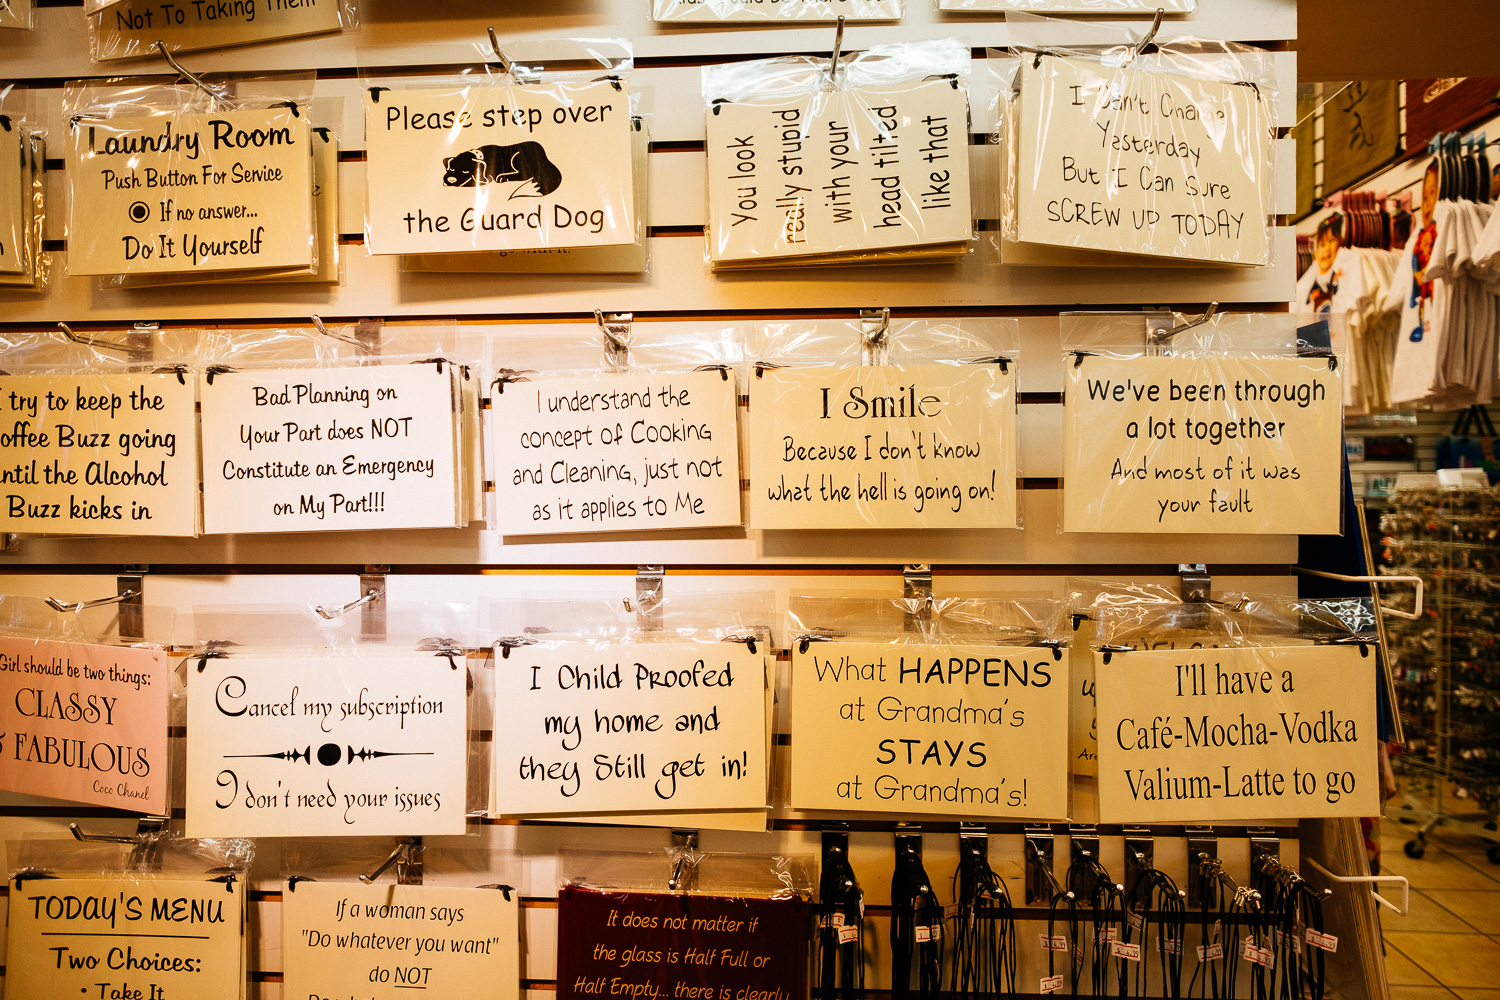 Not To Taking Them
Laundry Room
Push Button For Service
If no answer...
Do It Yourself
Please step over
the Guard Dog
You look
really stupid
with your
head tilted
like that
I Can't Change
Yesterday
But I Can Sure
SCREW UP TODAY
I try to keep the
offee Buzz going
ntil the Alcohol
Buzz kicks in
Bad Planning on
Your Part does NOT
Constitute an Emergency
on My Part!!!
I understand the
concept of Cooking
and Cleaning, just not
as it applies to Me
I Smile
Because I don't know
what the hell is going on!
We've been through
a lot together
And most of it was
your fault
Girl should be two things:
CLASSY
& FABULOUS
Coco Chanel
Cancel my subscription
I don't need your issues
I Child Proofed
my home and
they Still get in!
What HAPPENS
at Grandma's
STAYS
at Grandma's!
I'll have a
Café-Mocha-Vodka
Valium-Latte to go
TODAY'S MENU
Two Choices:
• Take It
If a woman says
"Do whatever you want"
do NOT
It does not matter if
the glass is Half Full or
Half Empty... there is clearly